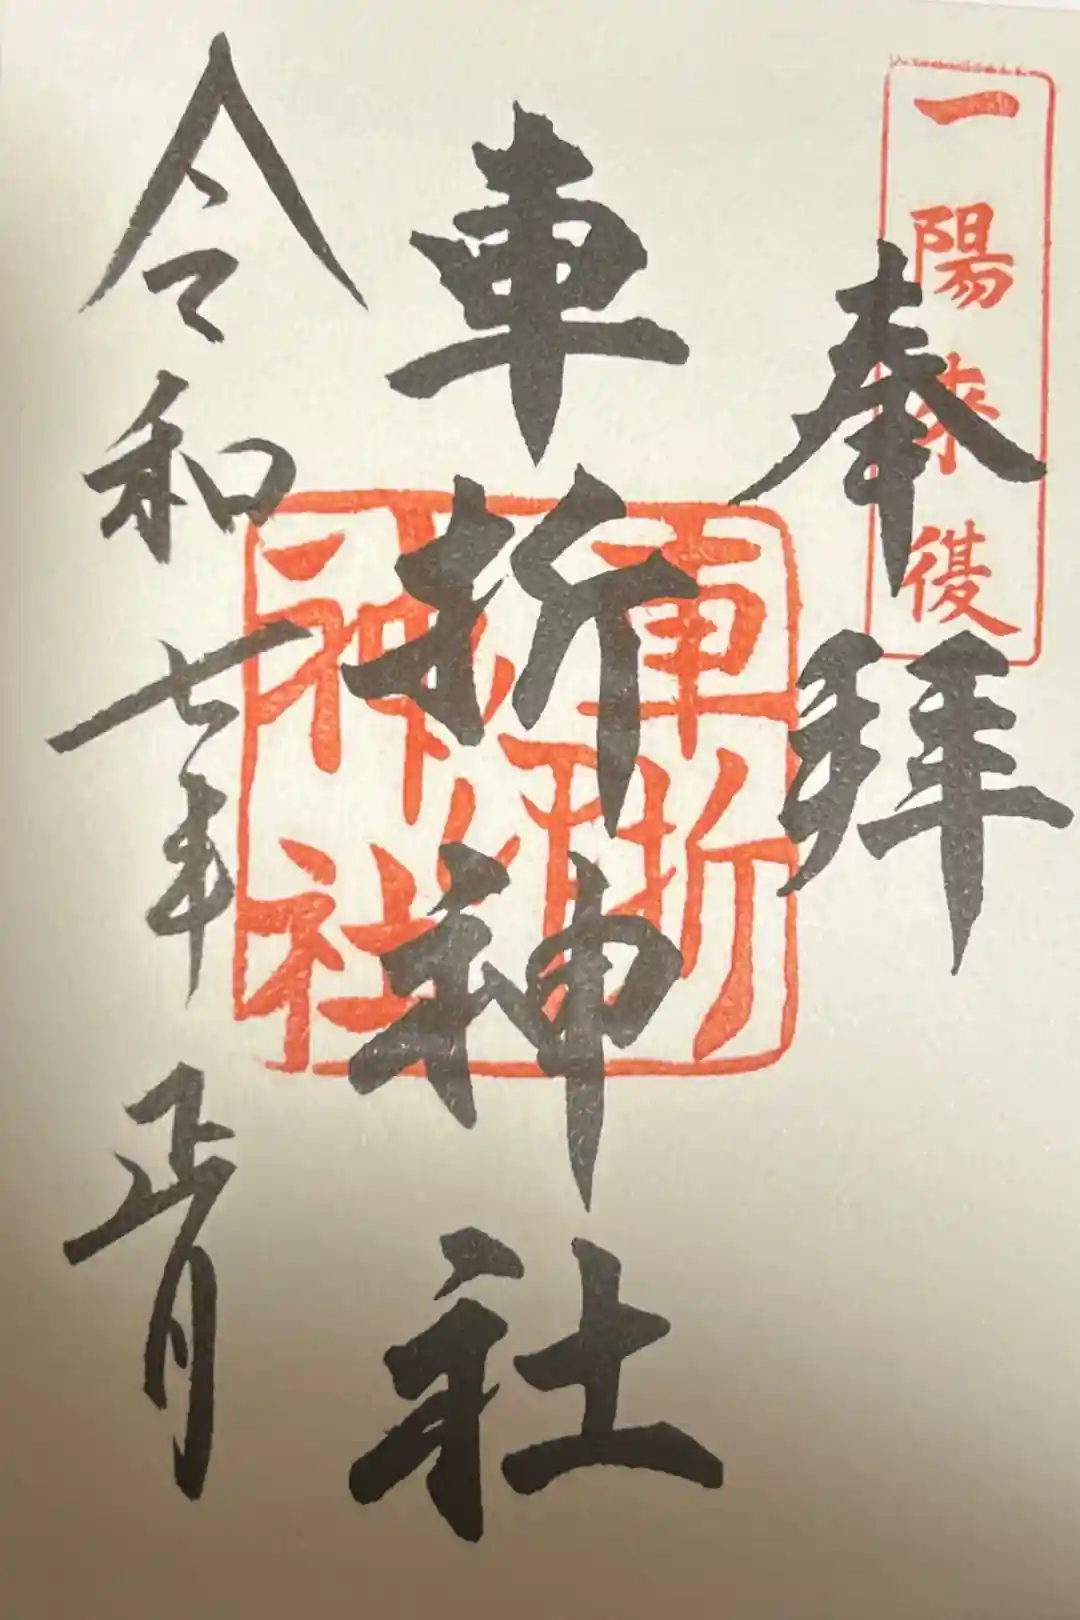 一陽来復
奉拝
車折神社
車折
神社
令和七年正月